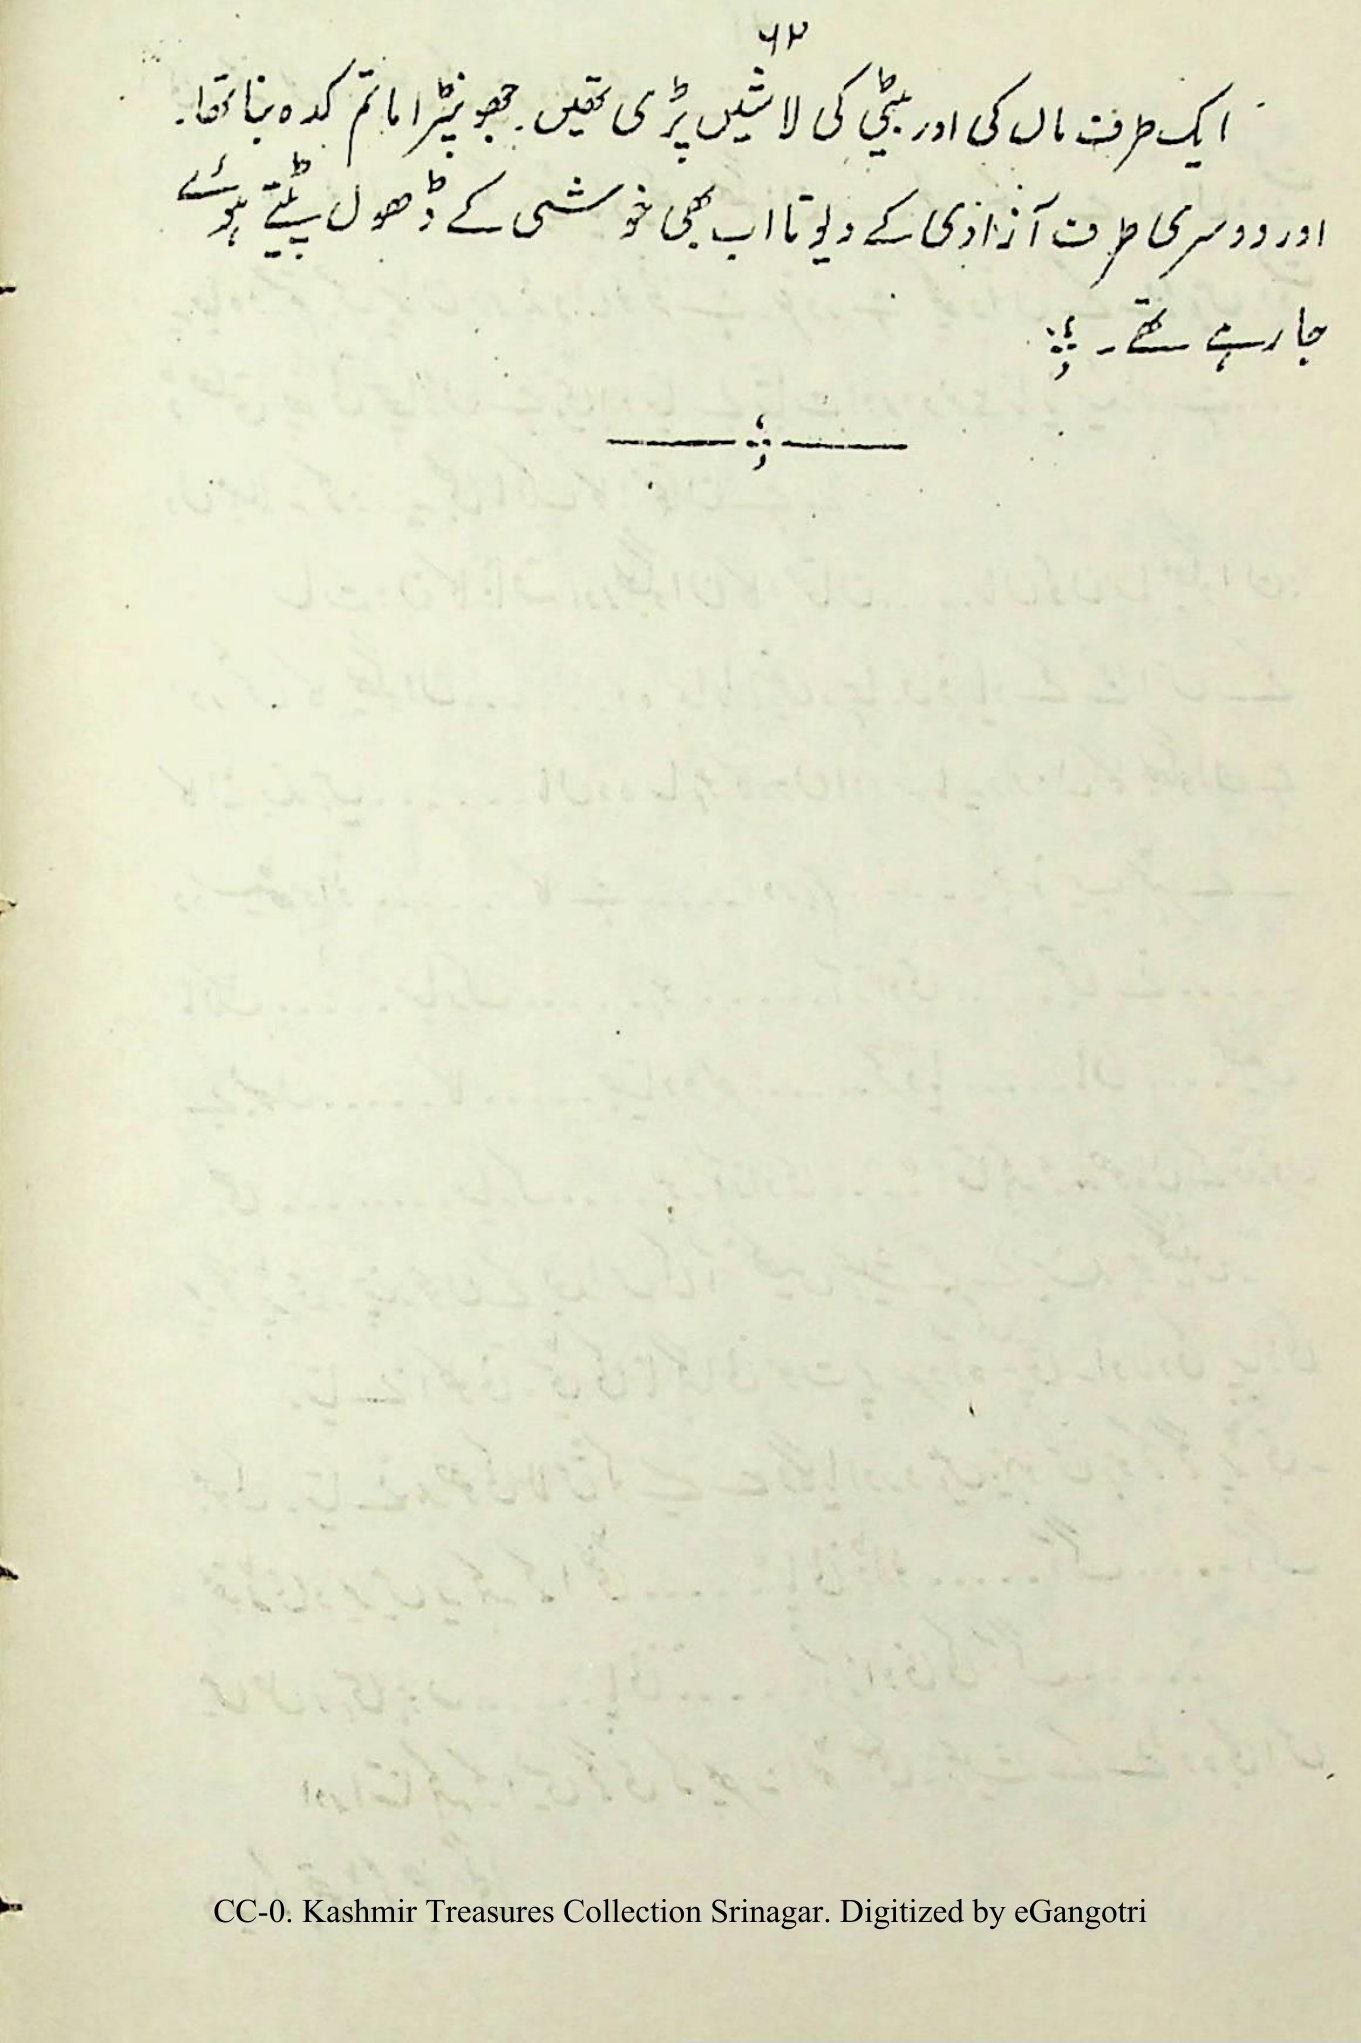 ۶۲
ایک طرف ماں کی اور بیٹی کی لاشیں پڑی تھیں۔ جھونپڑا ماتم کدہ بنا تھا۔
اور دوسری طرف آزادی کے دیوتا اب بھی خوشی کے ڈھول پیٹتے ہوئے
جا رہے تھے۔
CC-0. Kashmir Treasures Collection Srinagar. Digitized by eGangotri